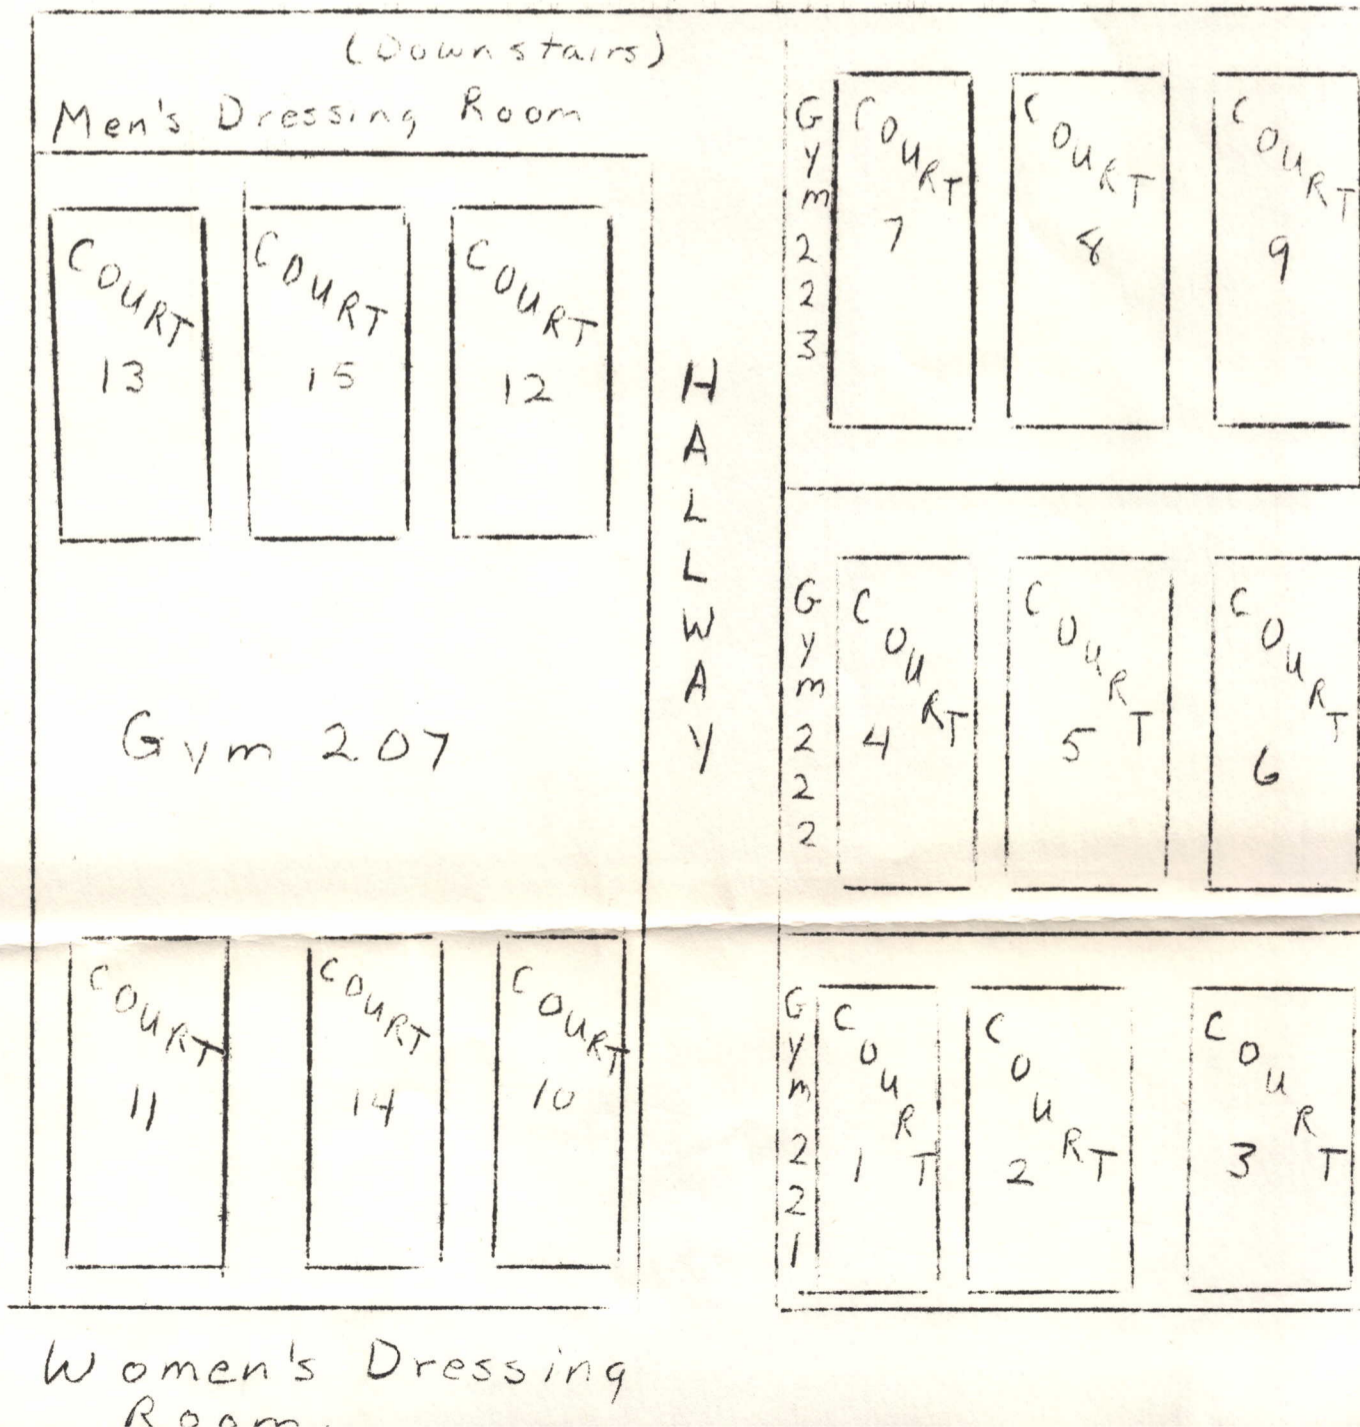 (Downstairs)
Men's Dressing Room
COURT
13
COURT
15
COURT
12
Gym 207
COURT
11
COURT
14
COURT
10
Women's Dressing
Room.
HALLWAY
Gym 223
COURT
7
COURT
8
COURT
9
Gym 222
COURT
4
COURT
5
COURT
6
Gym 221
COURT
1
COURT
2
COURT
3